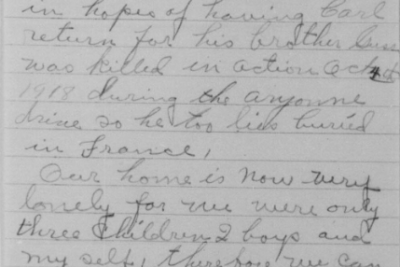 in hopes of having Carl
return for his brother
was killed in action Oct 4
1918 during the aryonne
drive so he too lies buried
in France,
Our home is now very
lonely for we were only
three children 2 boys and
my self, therefore we can